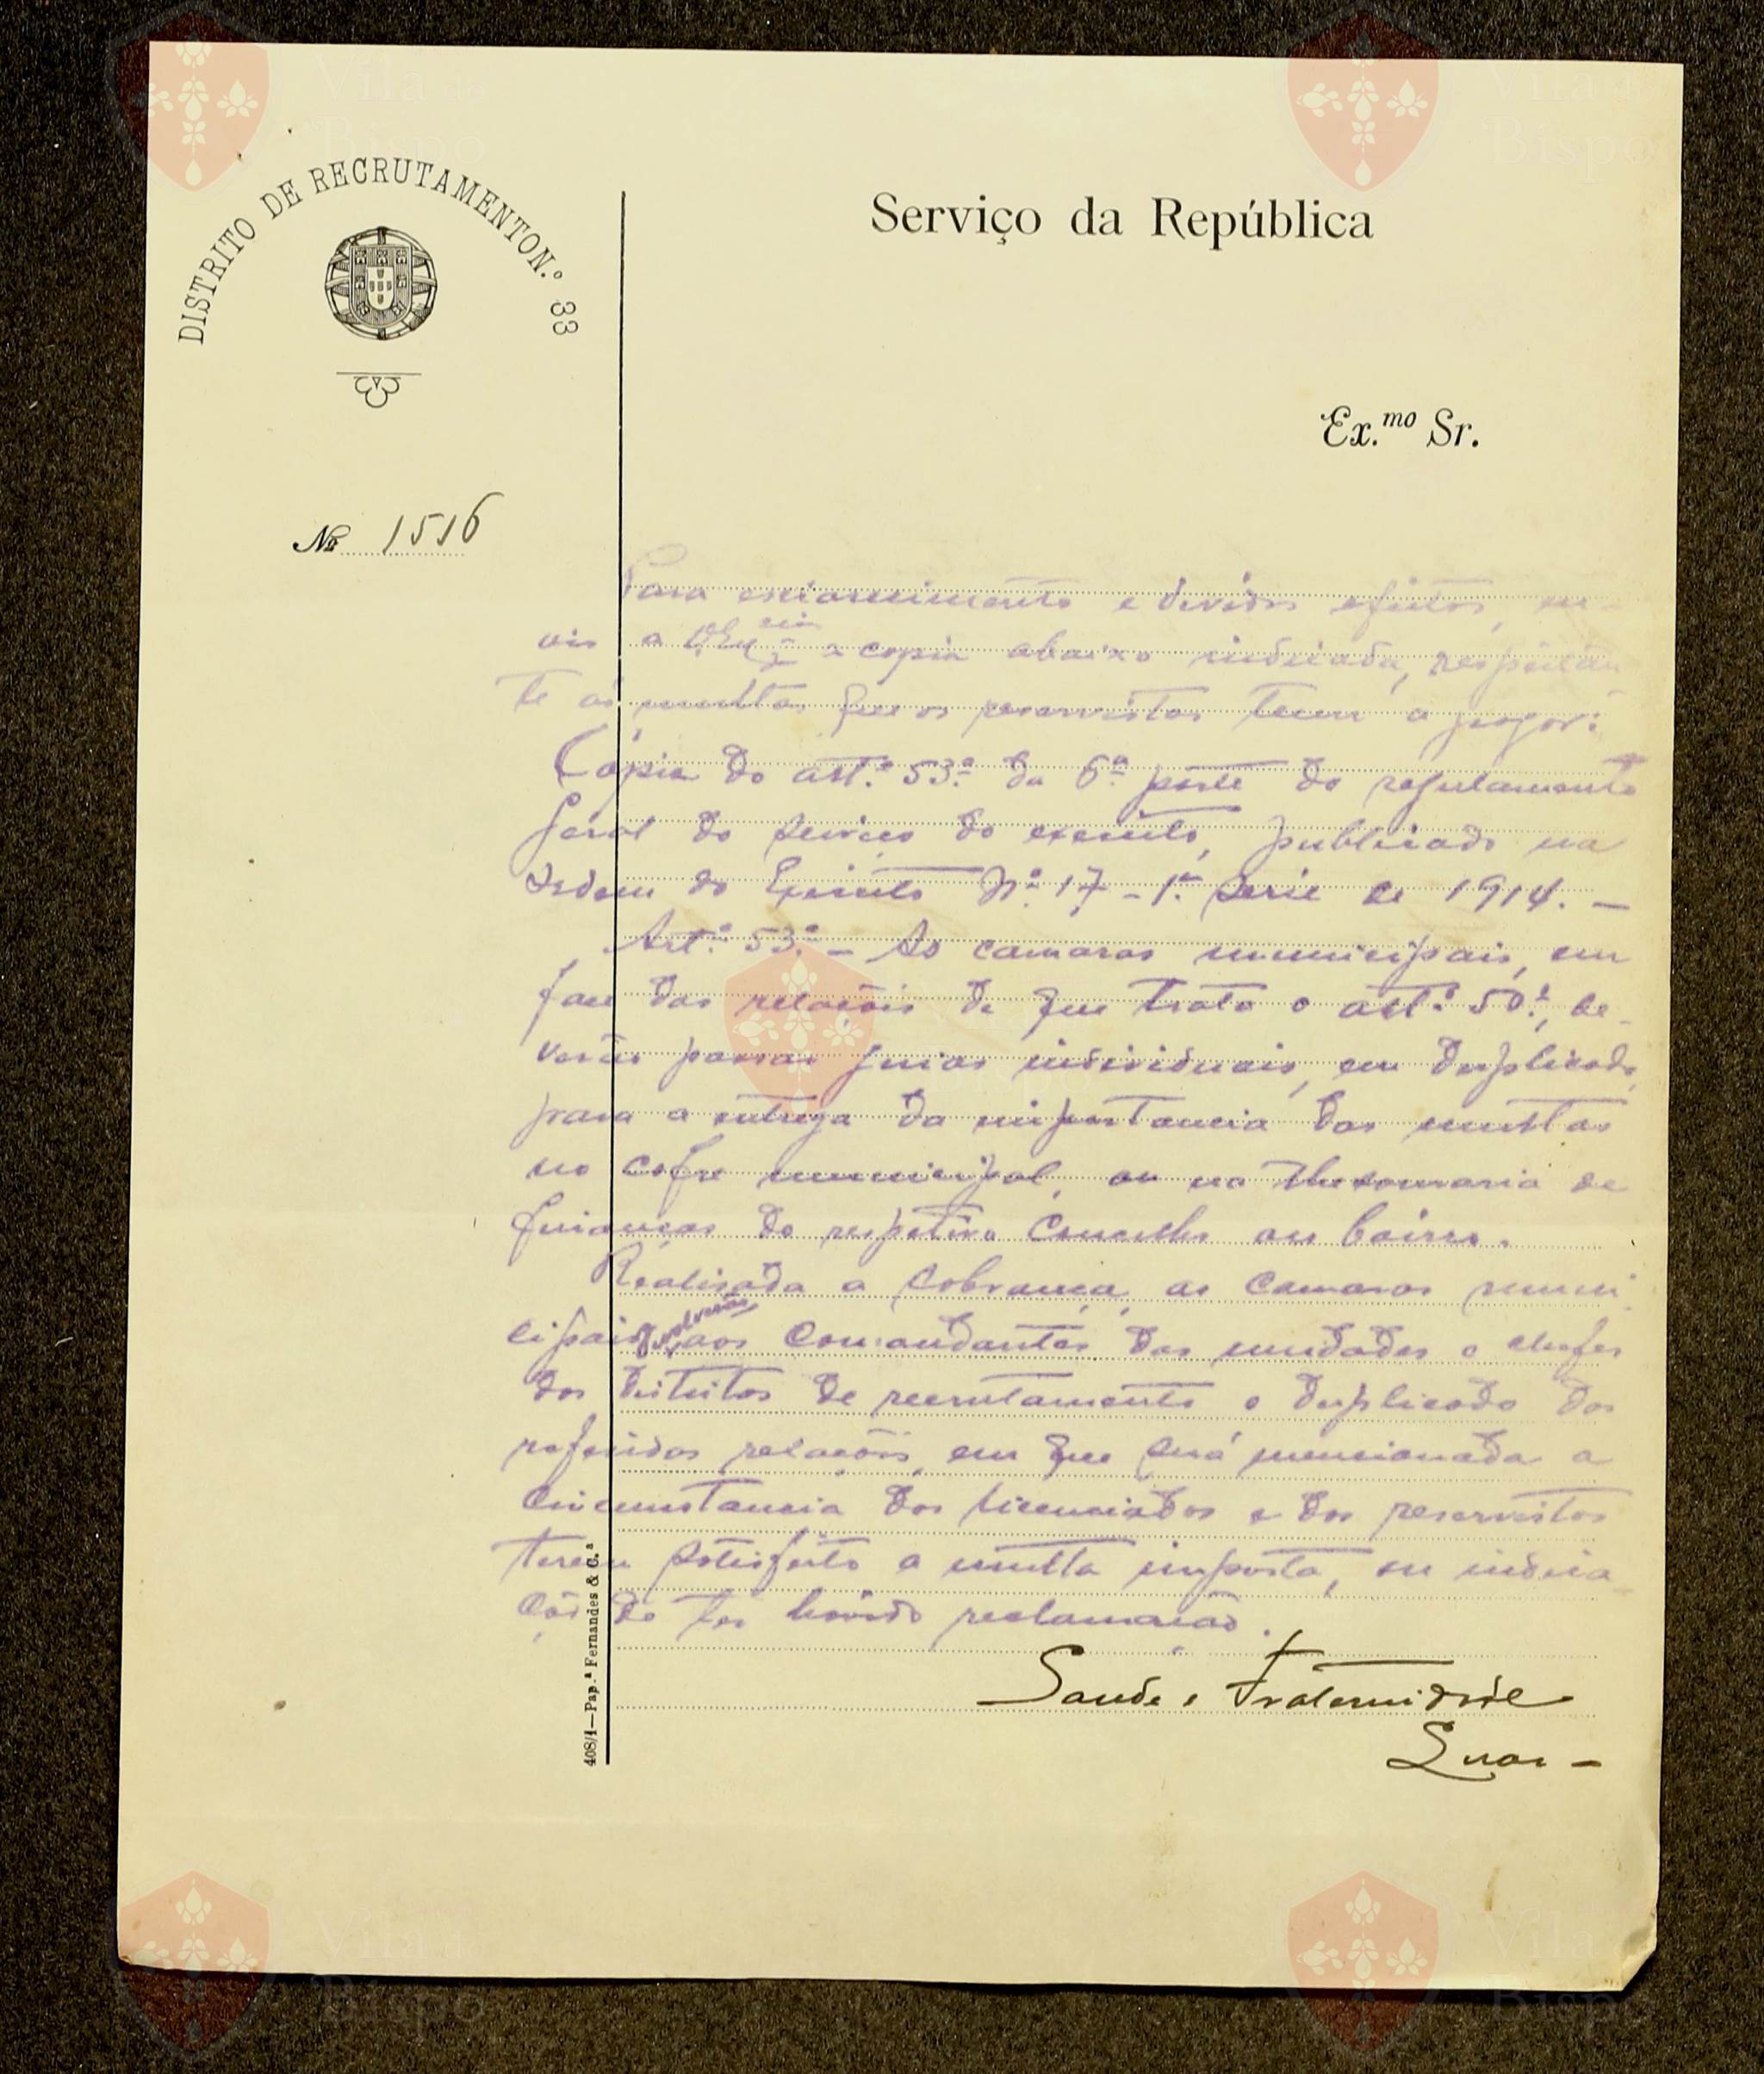 Vila do Bispo
Vila do Bispo
DISTRITO DE RECRUTAMENTO N.º 33
Serviço da República
Ex.mo Sr.
Nº 1516
Para esclarecimento e devidos efeitos, en-
vio a V. Ex.cia a copia abaixo indicada, respeitan
te ás multas que os reservistas teem a pagar:
Cópia do art.º 53.º da 6.ª parte do regulamento
geral do serviço do exercito, publicado na
Ordem do Exercito N.º 17 - 1.ª Serie de 1914. -
Art.º 53.º - As camaras municipais, em
face das relações de que trata o art.º 50.º, de-
verão passar guias individuais, em duplicado,
para a entrega da importancia das multas
no cofre municipal, ou na thesouraria de
finanças do respetivo concelho ou bairro.
Realisada a cobrança, as camaras muni
cipais devolverão aos comandantes das unidades e chefes
dos distritos de recrutamento o duplicado das
referidas relações, em que será mencionada a
circumstancia dos licenciados e dos reservistas
terem satisfeito a multa imposta, ou indica-
ção de ter havido reclamação.
Saude e Fraternidade
408/1—Pap.ª Fernandes & C.ª
Vila do Bispo
Vila do Bispo